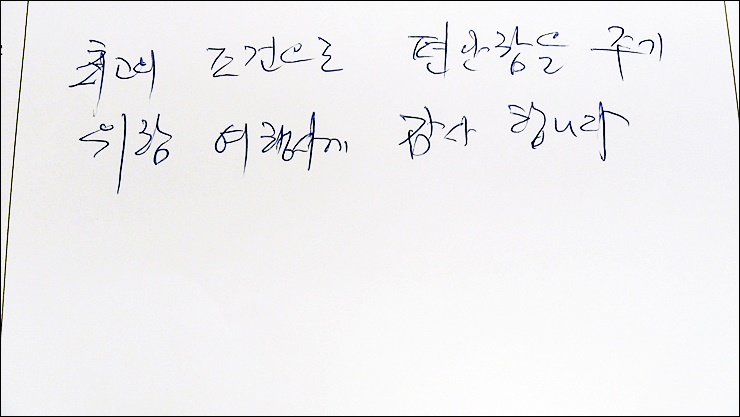 최고의 조건으로 편안함을 주기
위함 여행사에 감사 합니다